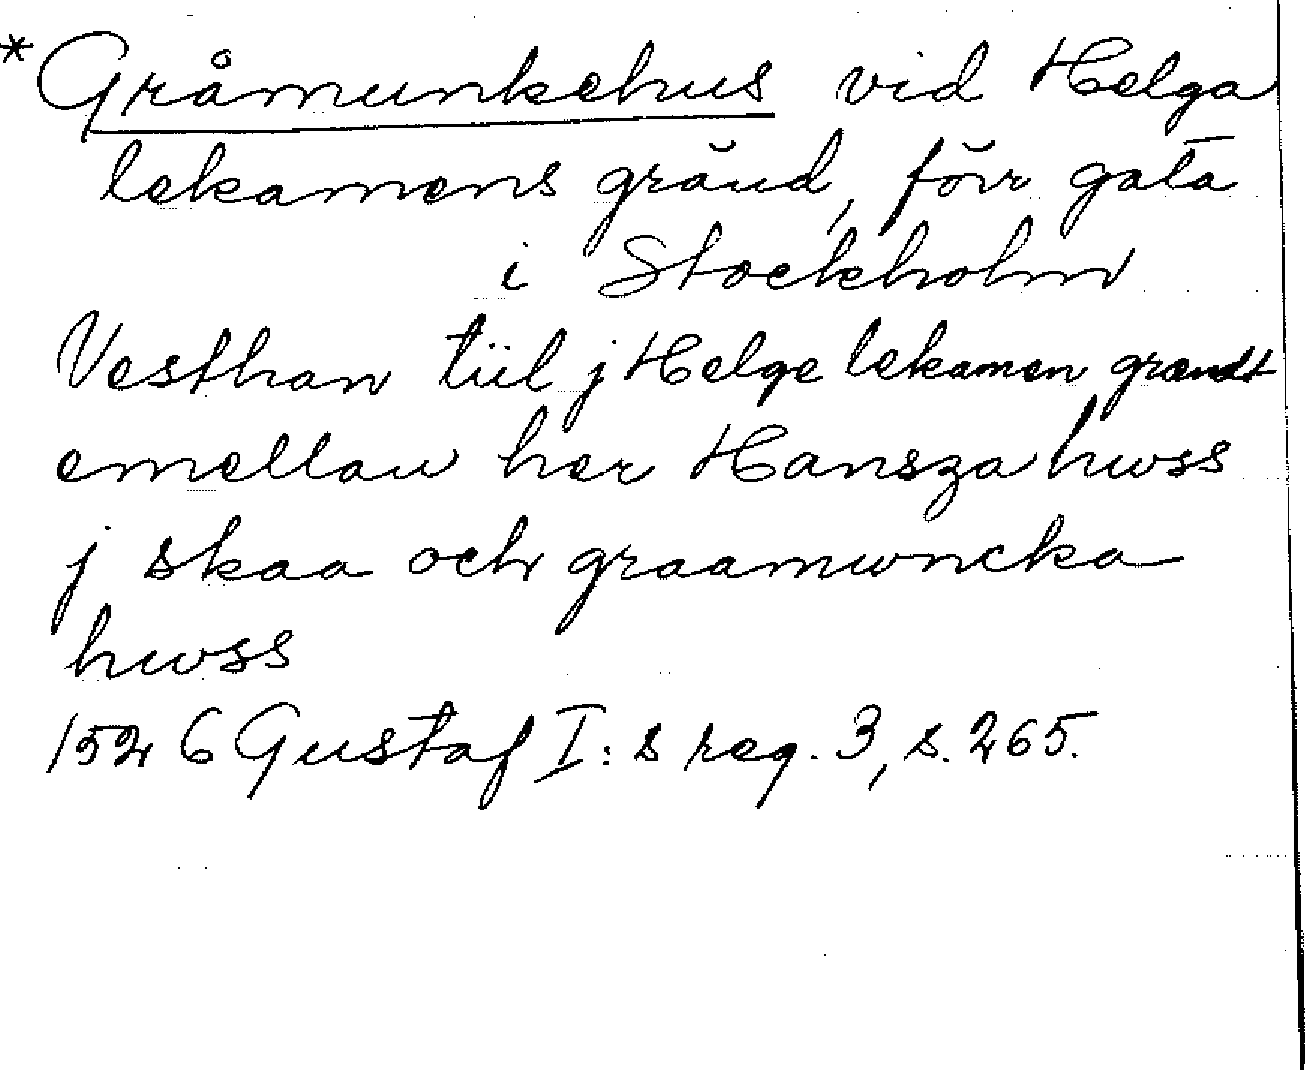 *Gråmunkehus vid Helga
lekamens gränd, förr gata
i Stockholm
Vesthan tiil j Helge lekamen grendt
emellan her Hansza hwss
j skaa och graamwncka
hwss
1526 Gustaf I:s reg. 3, s. 265.